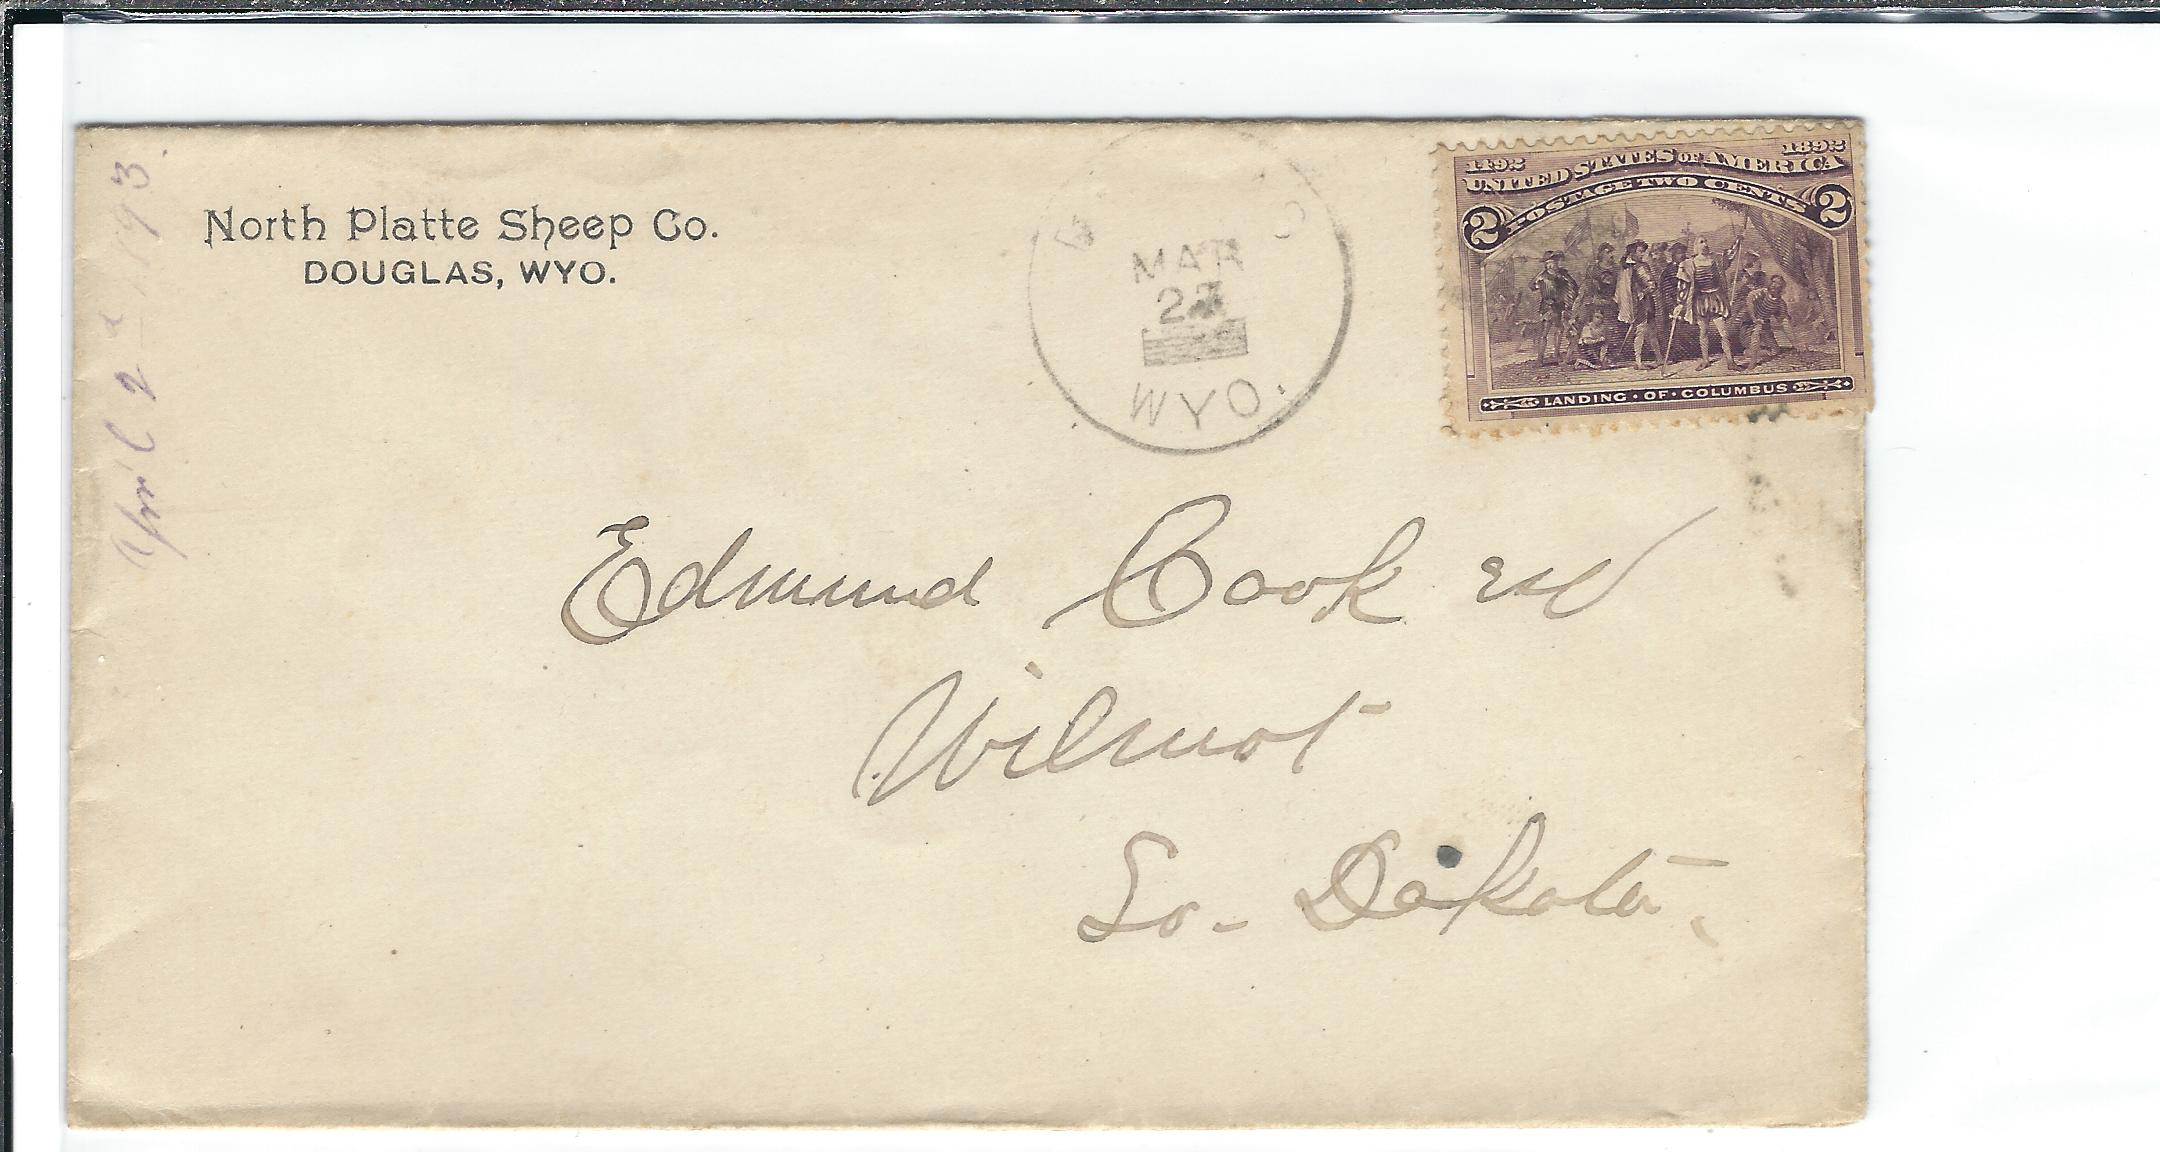 North Platte Sheep Co.
DOUGLAS, WYO.
April 2d 1893.
MAR
WYO.
1492 1892
UNITED STATES OF AMERICA
POSTAGE TWO CENTS
2 2
LANDING · OF · COLUMBUS
Edmund Cook esq
Wilmot
So - Dakota,